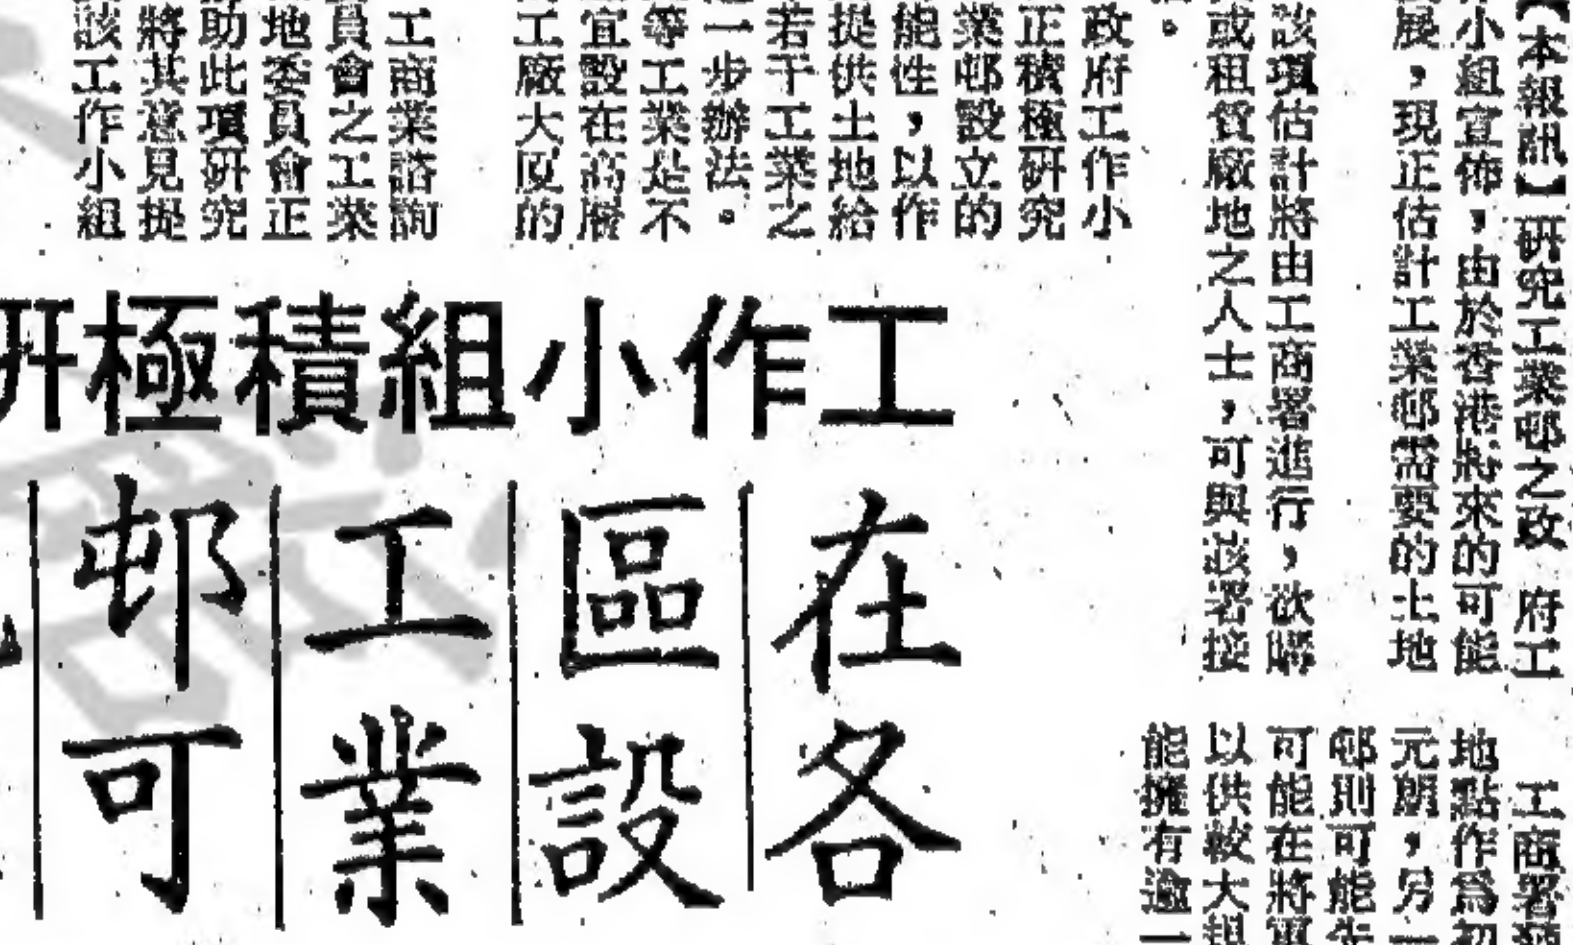 【本報訊】研究工業邨之政府工
小組宣佈，由於香港將來的可能
展，現正估計工業邨需要的土地
該項估計將由工商署進行，欲購
或租賃廠地之人士，可與該署接
。
政府工作小
正積極研究
業邨設立的
能性，以作
提供土地給
若干工業之
一步辦法。
等工業是不
宜設在高層
工廠大廈的
工商業諮詢
員會之工業
地委員會正
助此項研究
將其意見提
該工作小組
工作小組積極研
在各
區設
工業
邨可
工商署
地點作為初
元朗，另一
邨則可能先
可能在將軍
以供較大規
能擁有逾一